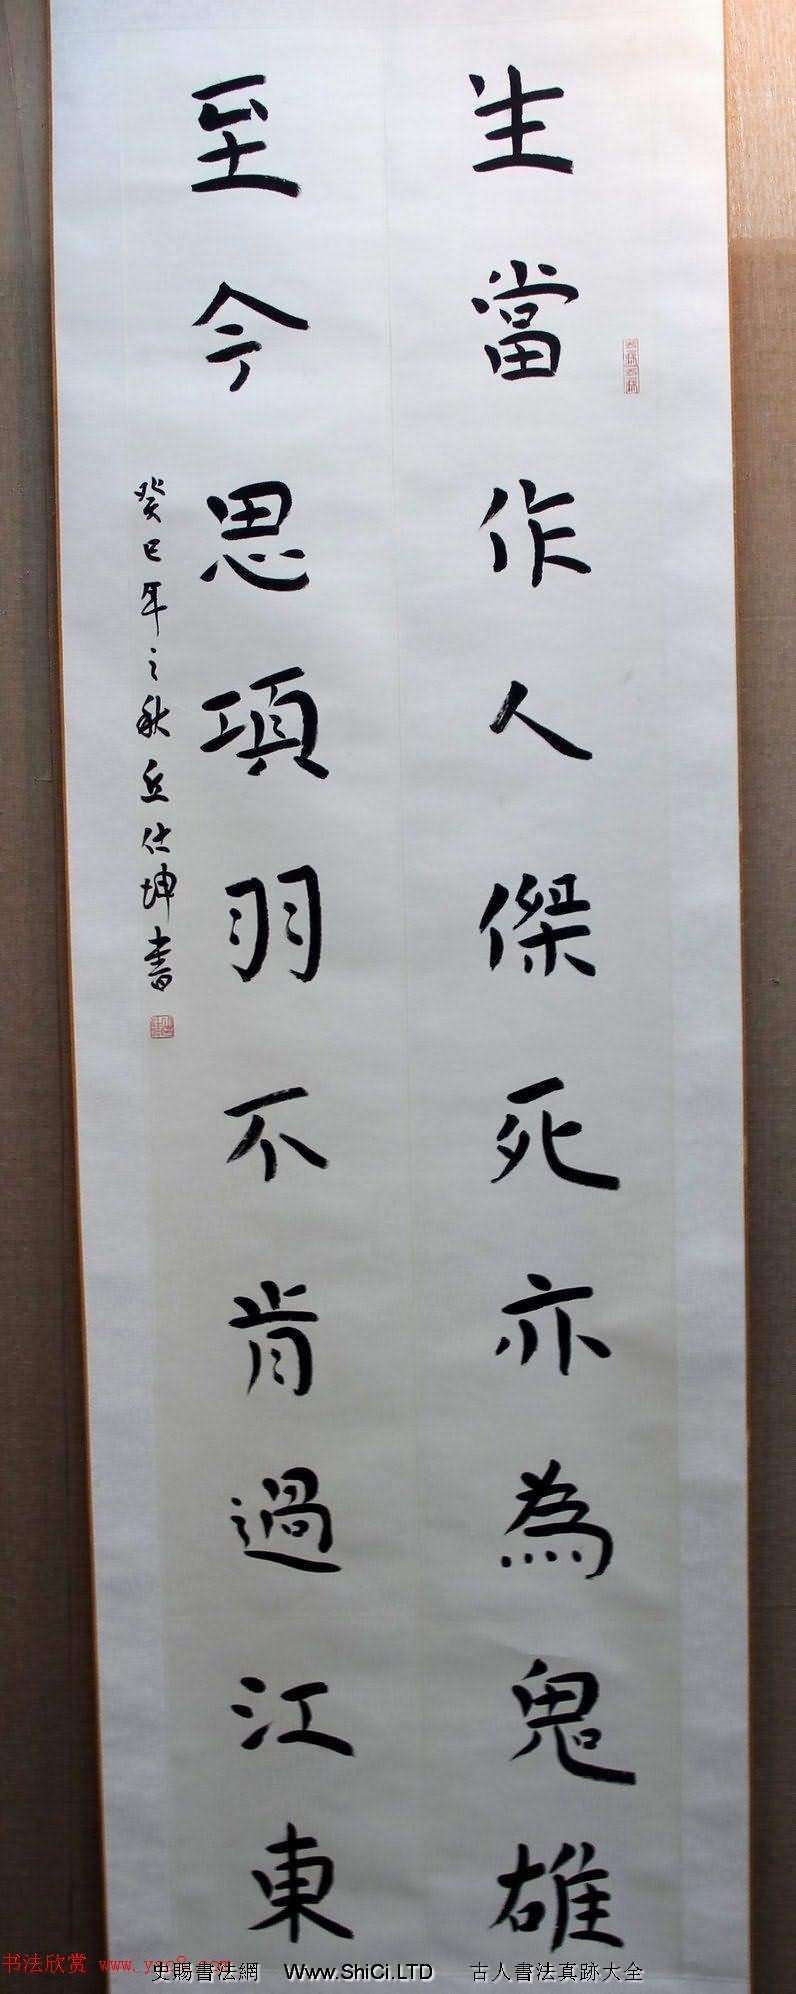 生當作人傑死亦為鬼雄
至今思項羽不肯過江東
癸巳年之秋丘仕坤書
书法欣赏
史賜書法網 Www.ShiCi.LTD 古人書法真跡大全